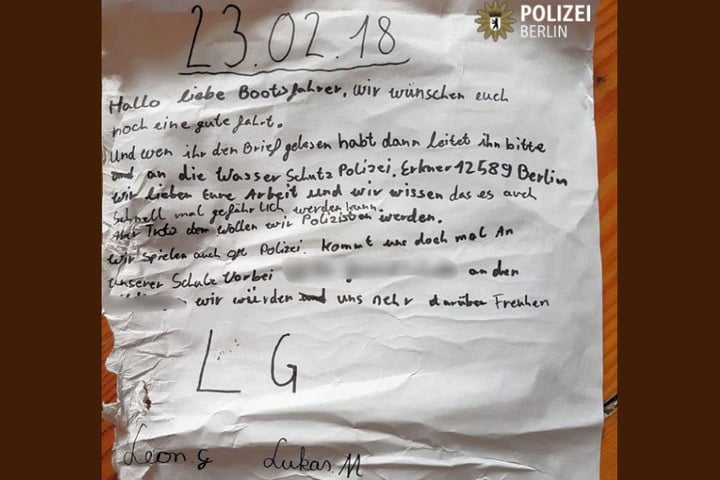 23.02.18
POLIZEI
BERLIN
Hallo liebe Bootsfahrer, wir wünschen euch
noch eine gute fahrt.
Und wen ihr den Brief gelesen habt dann leitet ihn bitte
an die Wasser Schutz Polizei, Erkner 12589 Berlin
wir lieben Eure Arbeit und wir wissen das es auch
Schnell mal gefährlich werden kann.
Aber Trotz dem wollen wir Polizisten werden.
Wir Spielen auch oft Polizei. Kommt uns doch mal An
unserer Schule Vorbei an den
wir würden uns sehr darüber Freuhen
LG
Leon.G Lukas.M